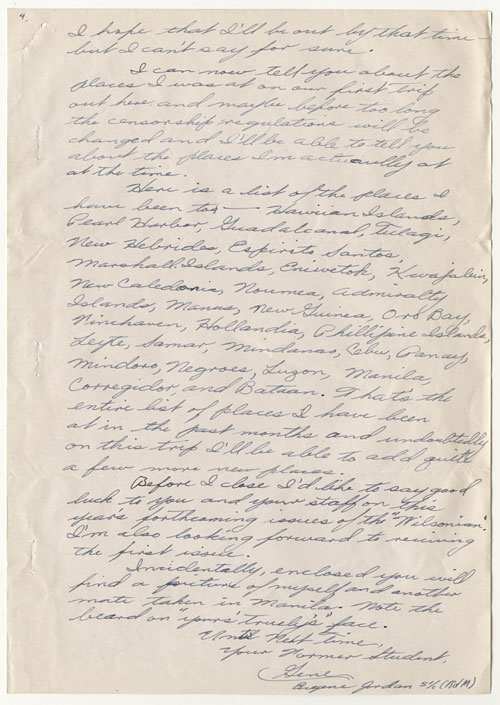 4.
I hope that I'll be out by that time -
but I can't say for sure.
I can now tell you about the
places I was at on our first trip
out here and maybe before too long
the censorship regulations will be
changed and I'll be able to tell you
about the places I'm actually at
at the time.
Here is a list of the places I
have been to, — Hawiian Islands,
Pearl Harbor, Guadalcanal, Tulagi,
New Hebrides, Espirito Santos,
Marshall Islands, Eniwetok, Kwajalein,
New Caledonia, Noumea, Admiralty
Islands, Manus, New Guinea, Oro Bay,
Finchaven, Hollandia, Phillipine Islands,
Leyte, Samar, Mindanao, Cebu, Panay,
Mindoro, Negroes, Luzon, Manila,
Corregidor, and Bataan. Thats the
entire list of places I have been
at in the past months and undoubtedly
on this trip I'll be able to add quite
a few more new places.
Before I close I'd like to say good
luck to you and your staff on this
year's forthcoming issues of the "Wilsonian".
I'm also looking forward to receiving
the first issue.
Incidentally, enclosed you will
find a picture of myself and another
mate taken in Manila. Note the
beard on "yours truely's" face.
Until Next time,
Your Former Student,
Gene
Eugene Jordan S 1/c (RdM)